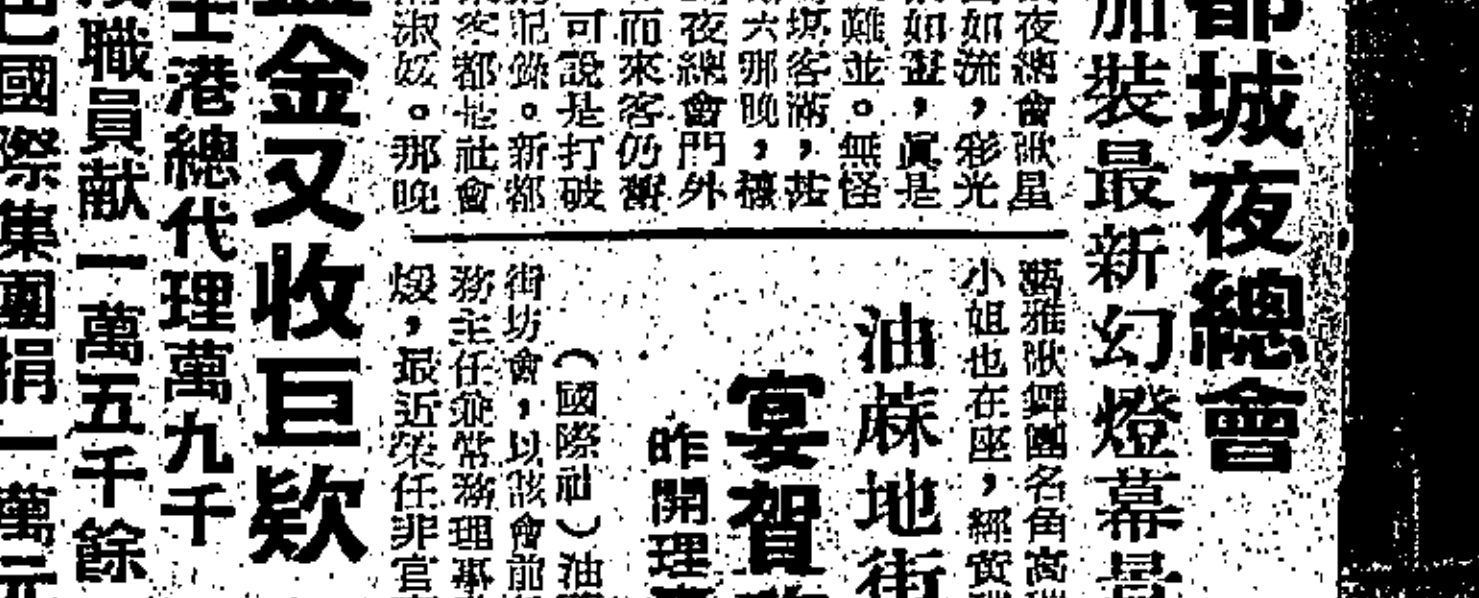 都城夜總會
加裝最新幻燈幕
夜總會歌星
如流，彩光
如晝，眞是
難並。無怪
塲客滿，甚
六那晚，
夜總會門外
而來客仍
可說是打破
記錄。新都
都是社會
淑媛。那晚
藝雅歌舞團名角高
小姐也在座，經
油蔴地街
宴賀
昨開理
（國際社）油
街坊會，以該會前
務主任兼常務理事
煅，最近榮任非官
金又收巨欵
士港總代理萬九千
職員献一萬五千餘
巴國際集團捐一萬元